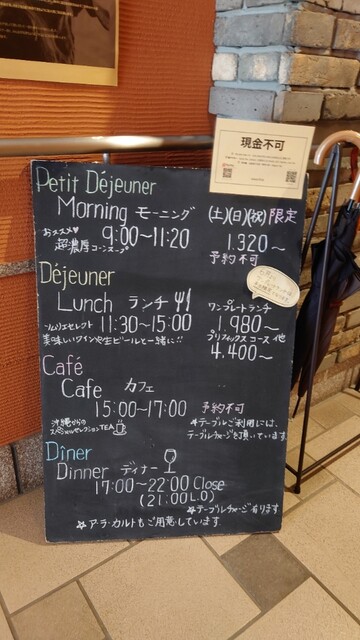 現金不可
Petit Déjeuner
Morning モーニング (土)(日)(祝)限定
おススメ♥
超濃厚コーンスープ
9:00〜11:20
1.320〜
予約不可
Déjeuner
Lunch ランチ
ワンプレートランチ
ソムリエセレクト 11:30〜15:00
1.980〜
美味しいワインや生ビールと一緒に!!
プリフィックスコース 他
4.400〜
Café
Cafe カフェ
15:00〜17:00 予約不可
沖縄からの
スペシャルセレクションTEA
※テーブルご利用には、
テーブルチャージを頂いています。
Dîner
Dinner ディナー
17:00〜22:00 Close
(21:00 L.O)
☆テーブルチャージ有ります
☆ア・ラ・カルトもご用意しています